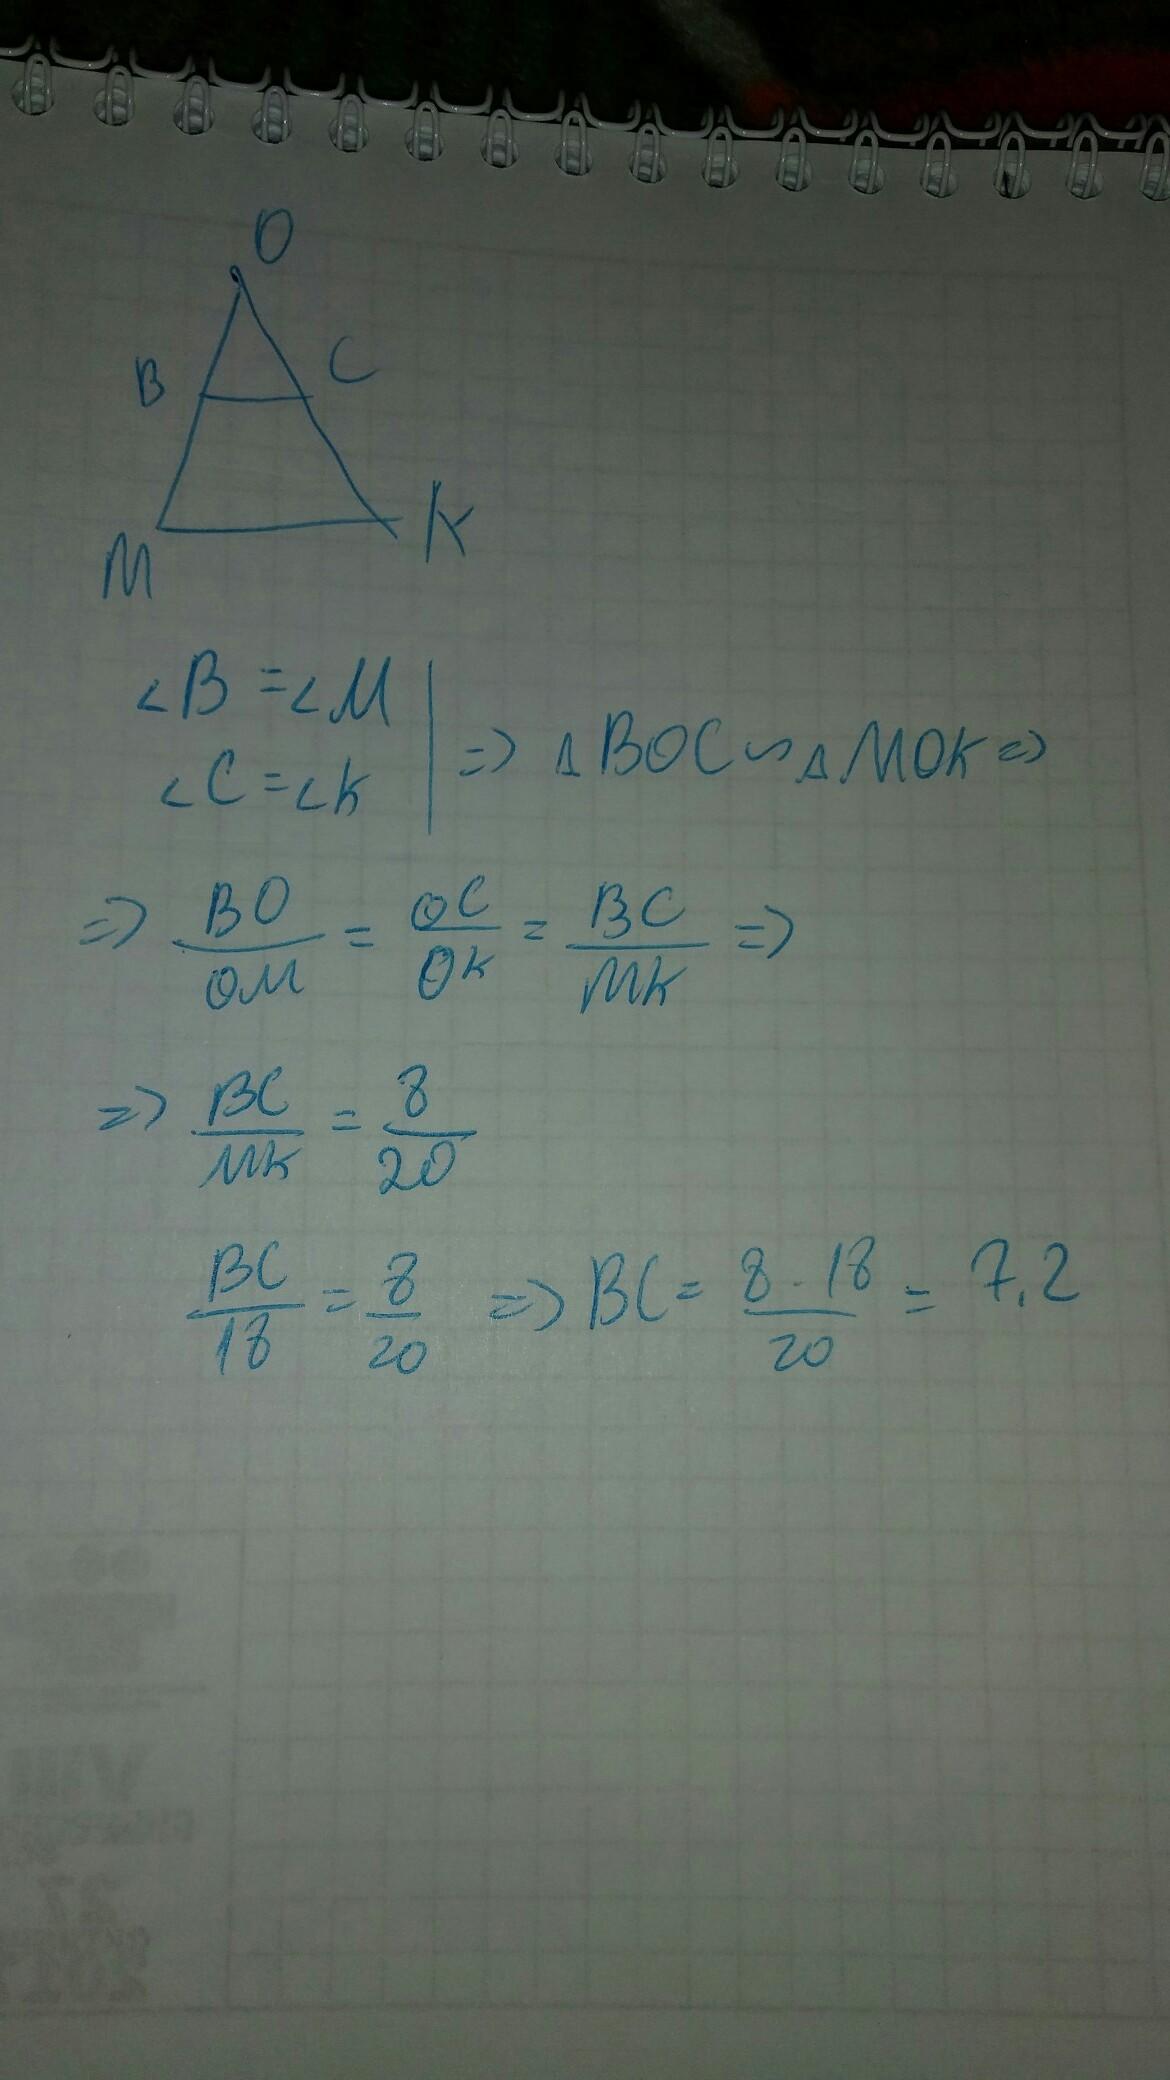 O
B C
M K
∠B = ∠M
∠C = ∠K
=> △BOC ∽ △MOK =>
=> BO/OM = OC/OK = BC/MK =>
=> BC/MK = 8/20
BC/18 = 8/20 => BC = 8 · 18/20 = 7,2